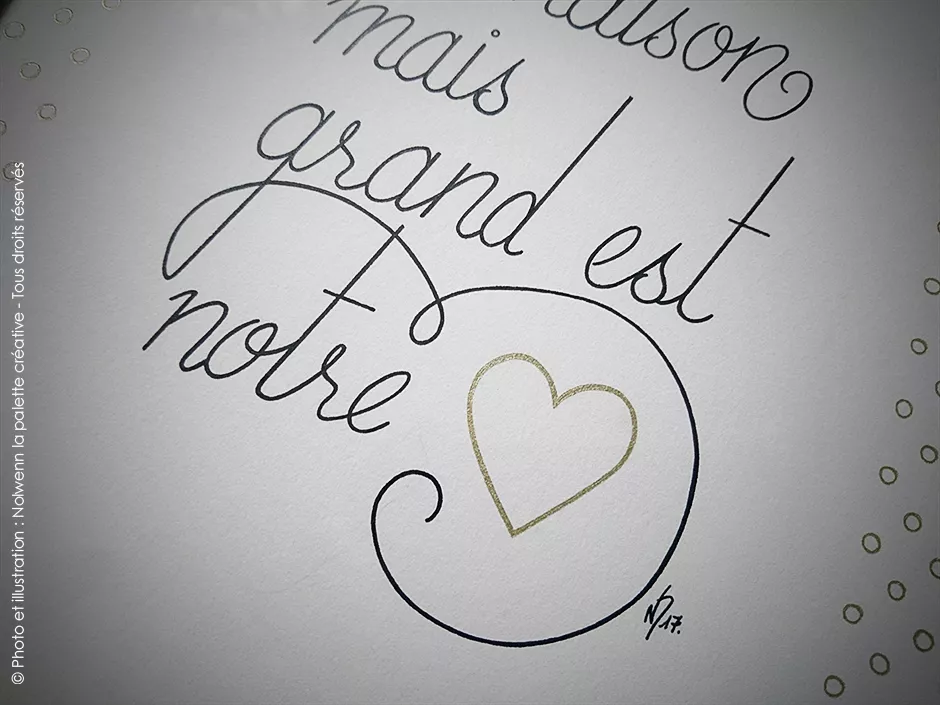 maison
mais
grand est
notre
ND 17.
© Photo et illustration : Nolwenn la palette créative - Tous droits réservés